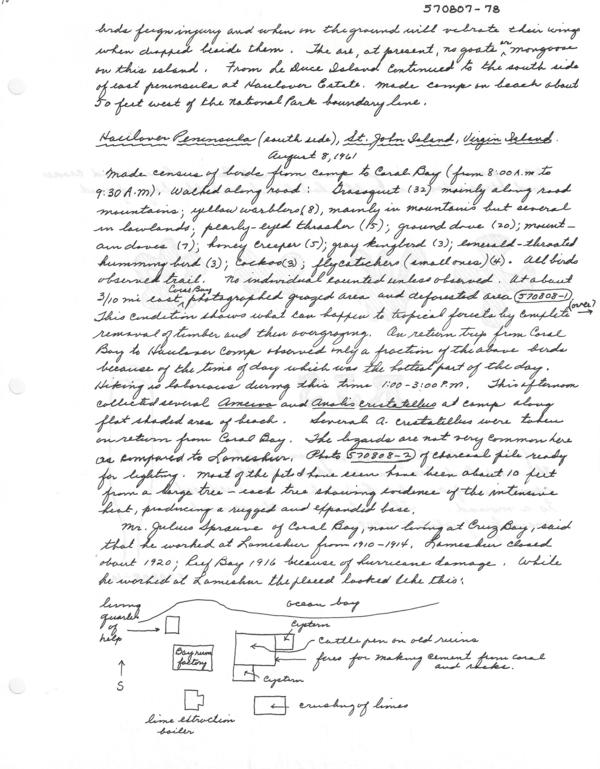 570807-78
birds feign injury and when on the ground will vibrate their wings
when dropped beside them. The are, at present, no goats or mongoose
on this island. From Le Duce Island continued to the south side
of east peninsula at Haulover Estate. Made camp on beach about
50 feet west of the National Park boundary line.
Haulover Peninsula (south side), St. John Island, Virgin Island.
August 8, 1961
Made census of birds from camp to Coral Bay (from 8:00 A.M. to
9:30 A.M). Walked along road: Grassquit (32) mainly along road
mountains; yellow warblers (8), mainly in mountains but several
in lowlands; pearly-eyed thrasher (15); ground dove (20); mount-
ain doves (7); honey creeper (5); gray kingbird (3); emerald-throated
humming bird (3); cuckoo (3); flycatchers (small ones) (4). All birds
observed trail. No individual counted unless observed. At about
3/10 mi east Coral Bay, photographed grazed area and deforested area (570808-1)
This condition shows what can happen to tropical forests by complete (over?) →
removal of timber and then overgrazing. On return trip from Coral
Bay to Haulover Camp observed only a fraction of the above birds
because of the time of day which was the hottest part of the day.
Hiking is laborious during this time 1:00-3:00 P.M. This afternoon
collected several Ameiva and Anolis cristatellus at camp along
flat shaded area of beach. Several A. cristatellus were taken
on return from Coral Bay. The lizards are not very common here
as compared to Lameshur. Photo (570808-2) of charcoal pile ready
for lighting. Most of the pits I have seen have been about 10 feet
from a large tree - each tree showing evidence of the intensive
heat, producing a rugged and expanded base.
Mr. Julius Sprauve of Coral Bay, now living at Cruz Bay, said
that he worked at Lameshur from 1910-1914. Lameshur closed
about 1920; Reef Bay 1916 because of hurricane damage. While
he worked at Lameshur the placed looked like this:
living quarters of help →
ocean bay
Cystern
Cattle pen on old ruins
Bay rum factory
fires for making cement from coral and rocks.
↑ S
Cystern
lime extraction boiler
crushing of limes